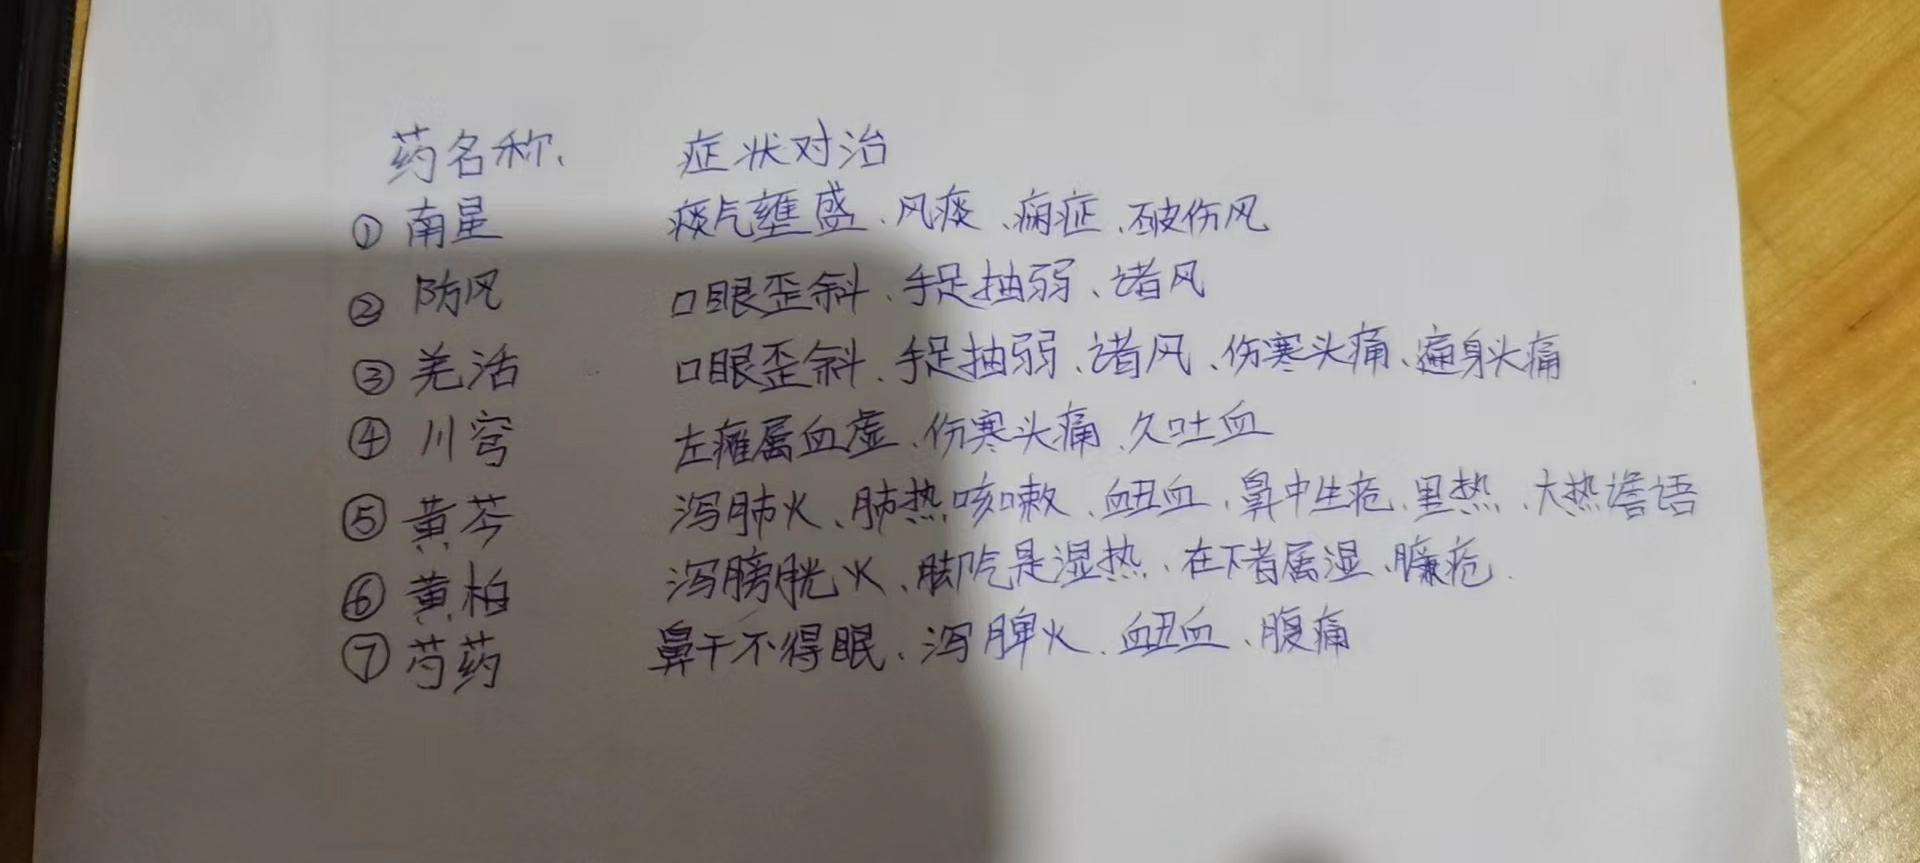 药名称、 症状对治
① 南星 痰气壅盛、风痰、痫症、破伤风
② 防风 口眼歪斜、手足抽弱、诸风
③ 羌活 口眼歪斜、手足抽弱、诸风、伤寒头痛、遍身头痛
④ 川穹 左瘫属血虚、伤寒头痛、久吐血
⑤ 黄芩 泻肺火、肺热咳嗽、衄血、鼻中生疮、里热、大热谵语
⑥ 黄柏 泻膀胱火、脚气是湿热、在下者属湿、臁疮.
⑦ 芍药 鼻干不得眠、泻脾火、衄血、腹痛